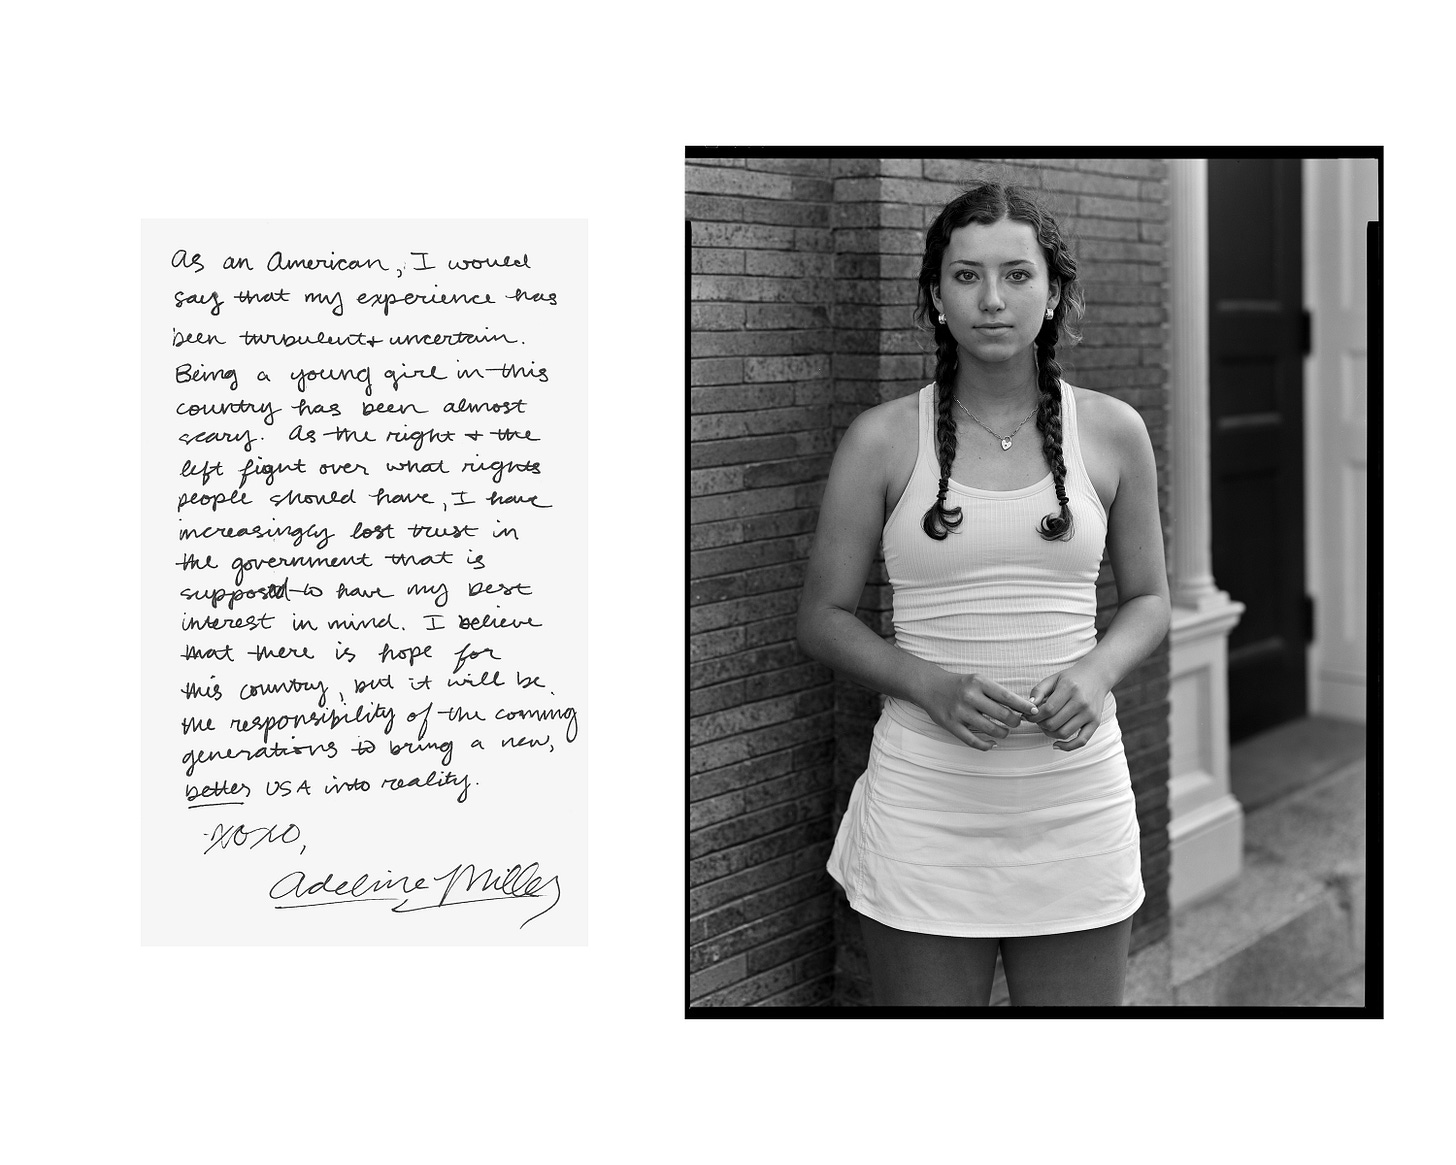 As an American, I would
say that my experience has
been turbulent + uncertain.
Being a young girl in this
country has been almost
scary. As the right + the
left fight over what rights
people should have, I have
increasingly lost trust in
the government that is
supposed to have my best
interest in mind. I believe
that there is hope for
this country, but it will be
the responsibility of the coming
generations to bring a new,
better USA into reality.
xoxo,
Adeline Miller